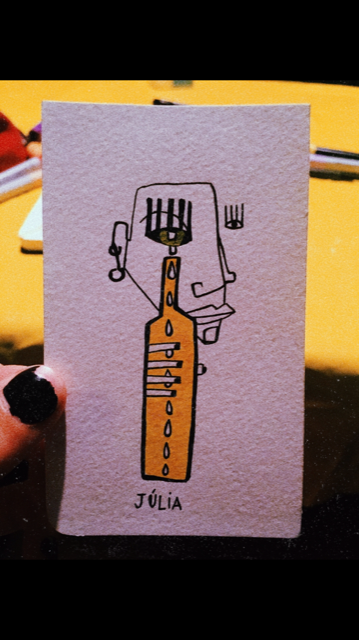 JÚLiA